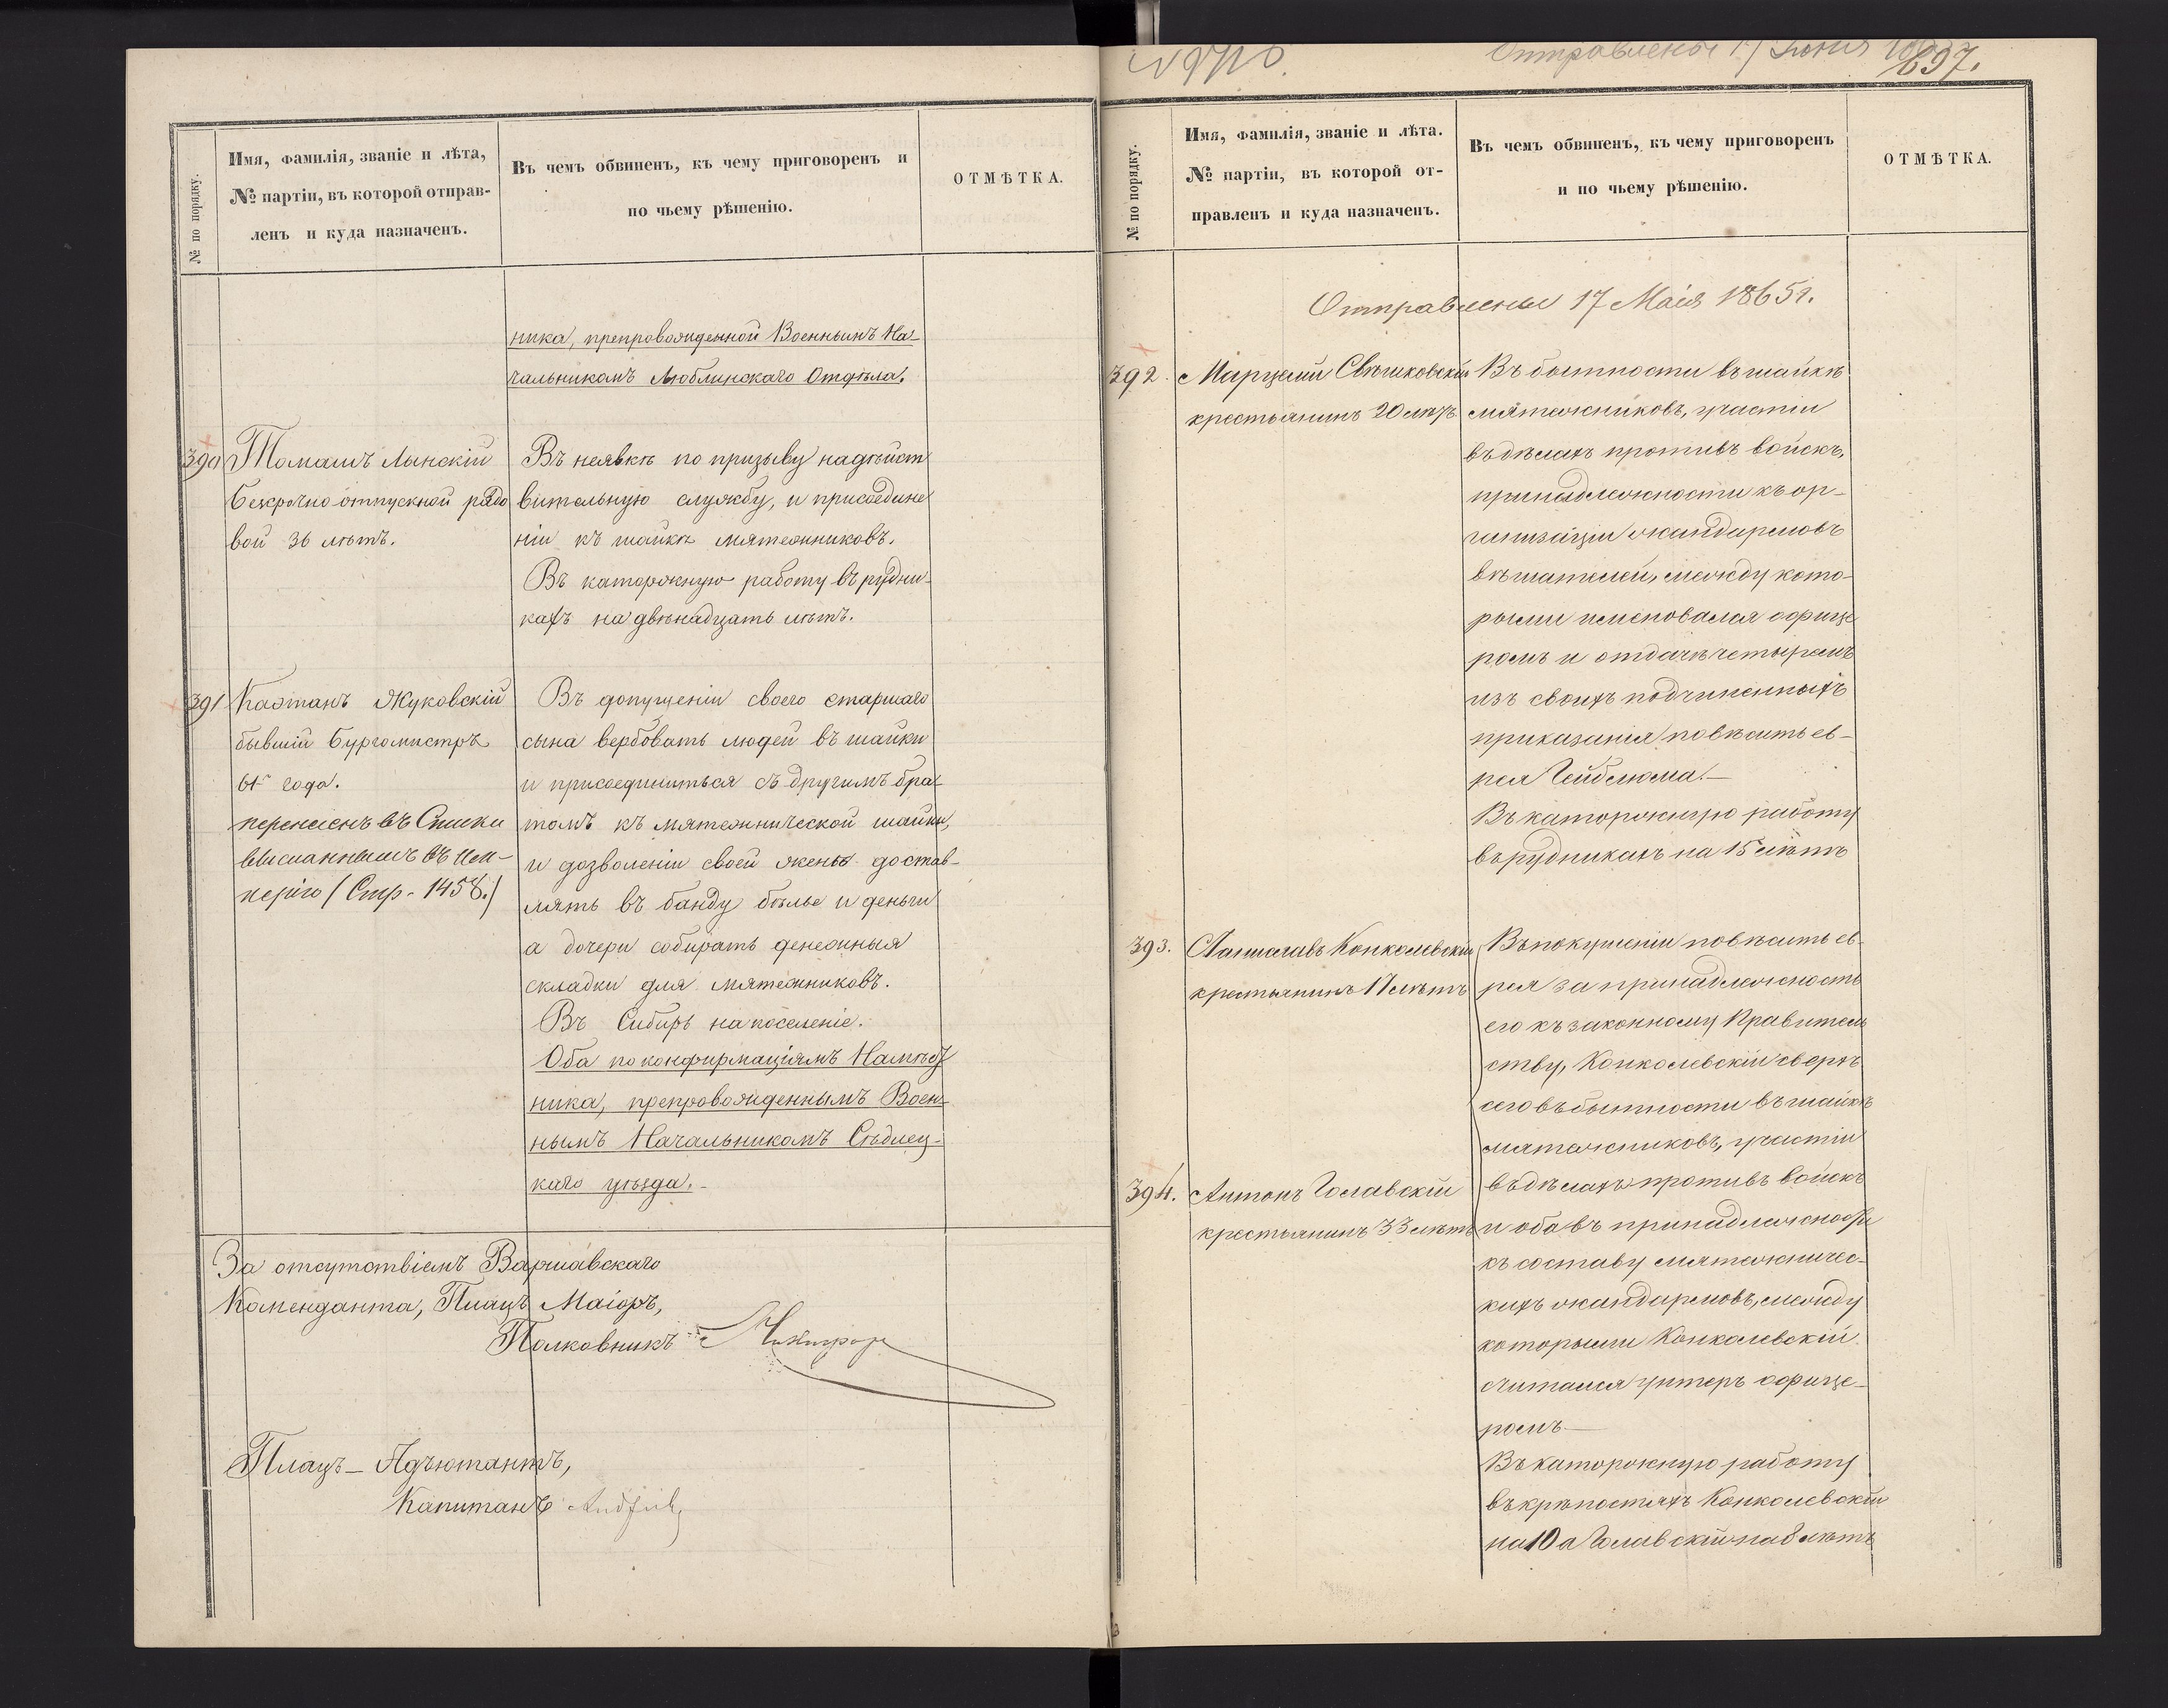 № по порядку.
Имя, фамилія, званіе и лѣта,
№ партіи, въ которой отправ-
ленъ и куда назначенъ.
Въ чемъ обвиненъ, къ чему приговоренъ и
по чьему рѣшенію.
ОТМѢТКА.
ника, препровожденной Военнымъ На-
чальникомъ Люблинскаго Отдѣла.
390
Томашъ Лынскій
безсрочно отпускной рядо
вой 36 лѣтъ.
Въ неявкѣ по призыву на дѣйст
вительную службу, и присоедине
ніи къ шайкѣ мятежниковъ.
Въ каторжную работу въ рудни-
кахъ на двѣнадцать лѣтъ.
391
Каэтанъ Жуковскій
бывшій бургомистръ
61 года.
перенесенъ въ Списки
высланнымъ въ Им-
перію (Стр. 1458.)
Въ допущеніи своего старшаго
сына вербовать людей въ шайки
и присоединиться съ другимъ бра-
томъ къ мятежнической шайкѣ,
и дозволеніи своей женѣ достав-
лять въ банду бѣлье и деньги
а дочери собирать денежныя
складки для мятежниковъ.
Въ Сибирь на поселеніе.
Оба по конфирмаціямъ Намѣст
ника, препровожденнымъ Воен-
нымъ Начальникомъ Сѣдлец-
каго уѣзда.
За отсутствіемъ Варшавскаго
Коменданта, Плацъ Маіоръ,
Полковникъ
Плацъ-Адъютантъ,
Капитанъ
Отправлены 17 Іюня
697.
№ по порядку.
Имя, фамилія, званіе и лѣта.
№ партіи, въ которой от-
правленъ и куда назначенъ.
Въ чемъ обвиненъ, къ чему приговоренъ
и по чьему рѣшенію.
ОТМѢТКА.
Отправлены 17 Маія 1865 г.
392.
Марцелій Свѣшковскій
крестьянинъ 20 лѣтъ
Въ бытности въ шайкѣ
мятежниковъ, участіи
въ дѣлахъ противъ войскъ,
принадлежности къ ор-
ганизаціи жандармовъ
вѣшателей, между кото-
рыми именовался офице
ромъ и отдачѣ четыремъ
изъ своихъ подчиненныхъ
приказанія повѣсить ев-
рея Гейблюма.
Въ каторжную работу
въ рудникахъ на 15 лѣтъ
393.
Станиславъ Конколевскій
крестьянинъ 17 лѣтъ
Въ покушеніи повѣсить ев-
рея за принадлежность
его къ законному Правитель
ству, Конколевскій сверхъ
сего въ бытности въ шайкѣ
мятежниковъ, участіи
въ дѣлахъ противъ войскъ
394.
Антонъ Голавскій
крестьянинъ 33 лѣтъ
и оба въ принадлежности
къ составу мятежничес-
кихъ жандармовъ, между
которыми Конколевскій
считался унтеръ офице-
ромъ
Въ каторжную работу
въ крѣпостяхъ Конколевскій
на 10 а Голавскій на 8 лѣтъ